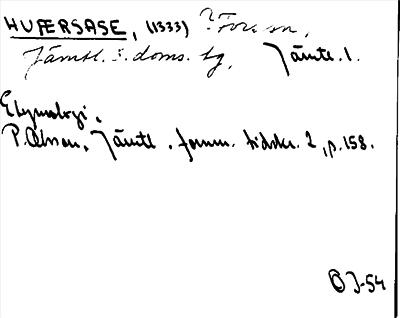 HUFÆRSASE, (1333) ? Forum,
Jämtl. s. doms. tg, Jämtl. l.
Etymologi.
P. Olsson, Jämtl. fornm. tidskr. 2, p. 158.
OJ-54